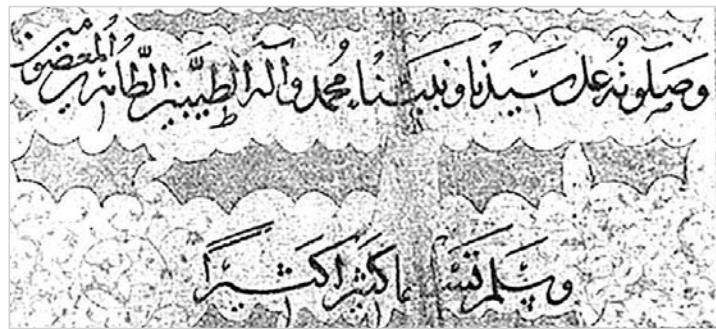 وصلوته على سيدنا ونبينا محمد وآله الطيبين الطاهرين المعصومين
وسلم تسليما كثيرا كثيرا